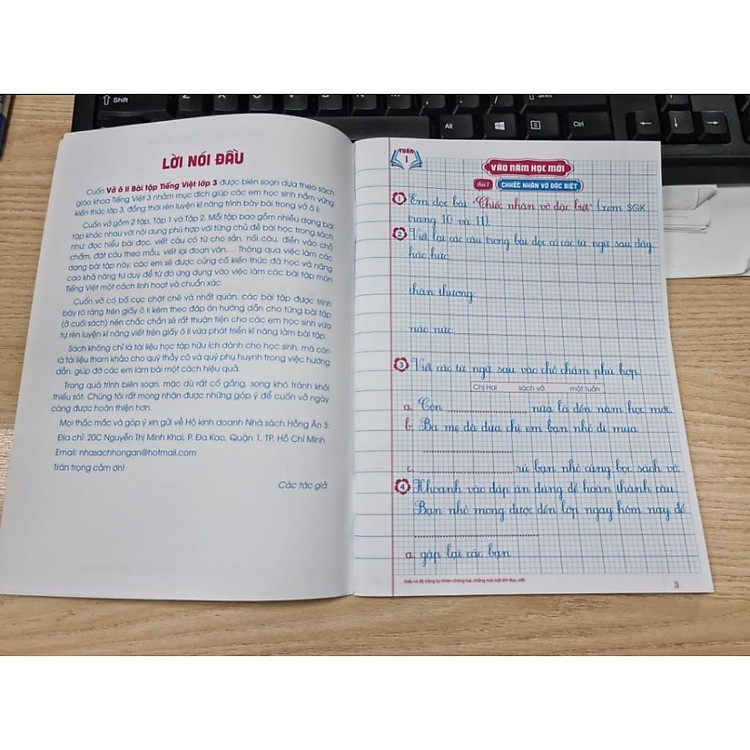 Shift
Alt
Alt
Ctrl
End
LỜI NÓI ĐẦU
Cuốn Vở ô li Bài tập Tiếng Việt lớp 3 được biên soạn dựa theo sách
giáo khoa Tiếng Việt 3 nhằm mục đích giúp các em học sinh nắm vững
kiến thức lớp 3, đồng thời rèn luyện kĩ năng trình bày bài trong vở ô li.
Cuốn vở gồm 2 tập: Tập 1 và Tập 2. Mỗi tập bao gồm nhiều dạng bài
tập khác nhau với nội dung phù hợp với từng chủ đề bài học trong sách
như: đọc hiểu bài đọc, viết câu có từ cho sẵn, nối câu, điền vào chỗ
chấm, đặt câu theo mẫu, viết lại đoạn văn,... Thông qua việc làm các
dạng bài tập này, các em sẽ được củng cố kiến thức đã học và nâng
cao khả năng tư duy để từ đó ứng dụng vào việc làm các bài tập môn
Tiếng Việt một cách linh hoạt và chuẩn xác.
Cuốn vở có bố cục chặt chẽ và nhất quán, các bài tập được trình
bày rõ ràng trên giấy ô li kèm theo đáp án hướng dẫn cho từng bài tập
(ở cuối sách) nên chắc chắn sẽ rất thuận tiện cho các em học sinh vừa
tự rèn luyện kĩ năng viết trên giấy ô li vừa phát triển kĩ năng làm bài tập.
Sách không chỉ là tài liệu học tập hữu ích dành cho học sinh, mà còn
là tài liệu tham khảo cho quý thầy cô và quý phụ huynh trong việc hướng
dẫn, giúp đỡ các em làm bài một cách hiệu quả.
Trong quá trình biên soạn, mặc dù rất cố gắng, song khó tránh khỏi
thiếu sót. Chúng tôi rất mong nhận được những góp ý để cuốn vở ngày
càng được hoàn thiện hơn.
Mọi thắc mắc và góp ý xin gửi về Hộ kinh doanh Nhà sách Hồng Ân 3:
Địa chỉ: 20C Nguyễn Thị Minh Khai, P. Đa Kao, Quận 1, TP. Hồ Chí Minh
Email: nhasachhongan@hotmail.com
Trân trọng cảm ơn!
Các tác giả
TUẦN
1
VÀO NĂM HỌC MỚI
Bài 1 CHIẾC NHÃN VỞ ĐẶC BIỆT
1 Em đọc bài "Chiếc nhãn vở đặc biệt" (xem SGK
trang 10 và 11).
2 Viết lại các câu trong bài đọc có các từ ngữ sau đây
háo hức:
thân thương:
náo nức:
3 Viết các từ ngữ sau vào chỗ chấm phù hợp.
Chị Hai sách vở một tuần
a. Còn .................... nữa là đến năm học mới.
b. Ba mẹ đã đưa chị em bạn nhỏ đi mua
....................
c. .................... rủ bạn nhỏ cùng bọc sách vở.
4 Khoanh vào đáp án đúng để hoàn thành câu.
Bạn nhỏ mong được đến lớp ngay hôm nay để
....................
a. gặp lại các bạn
Giấy có độ trắng tự nhiên chống lóa, chống mỏi mắt khi đọc, viết
3